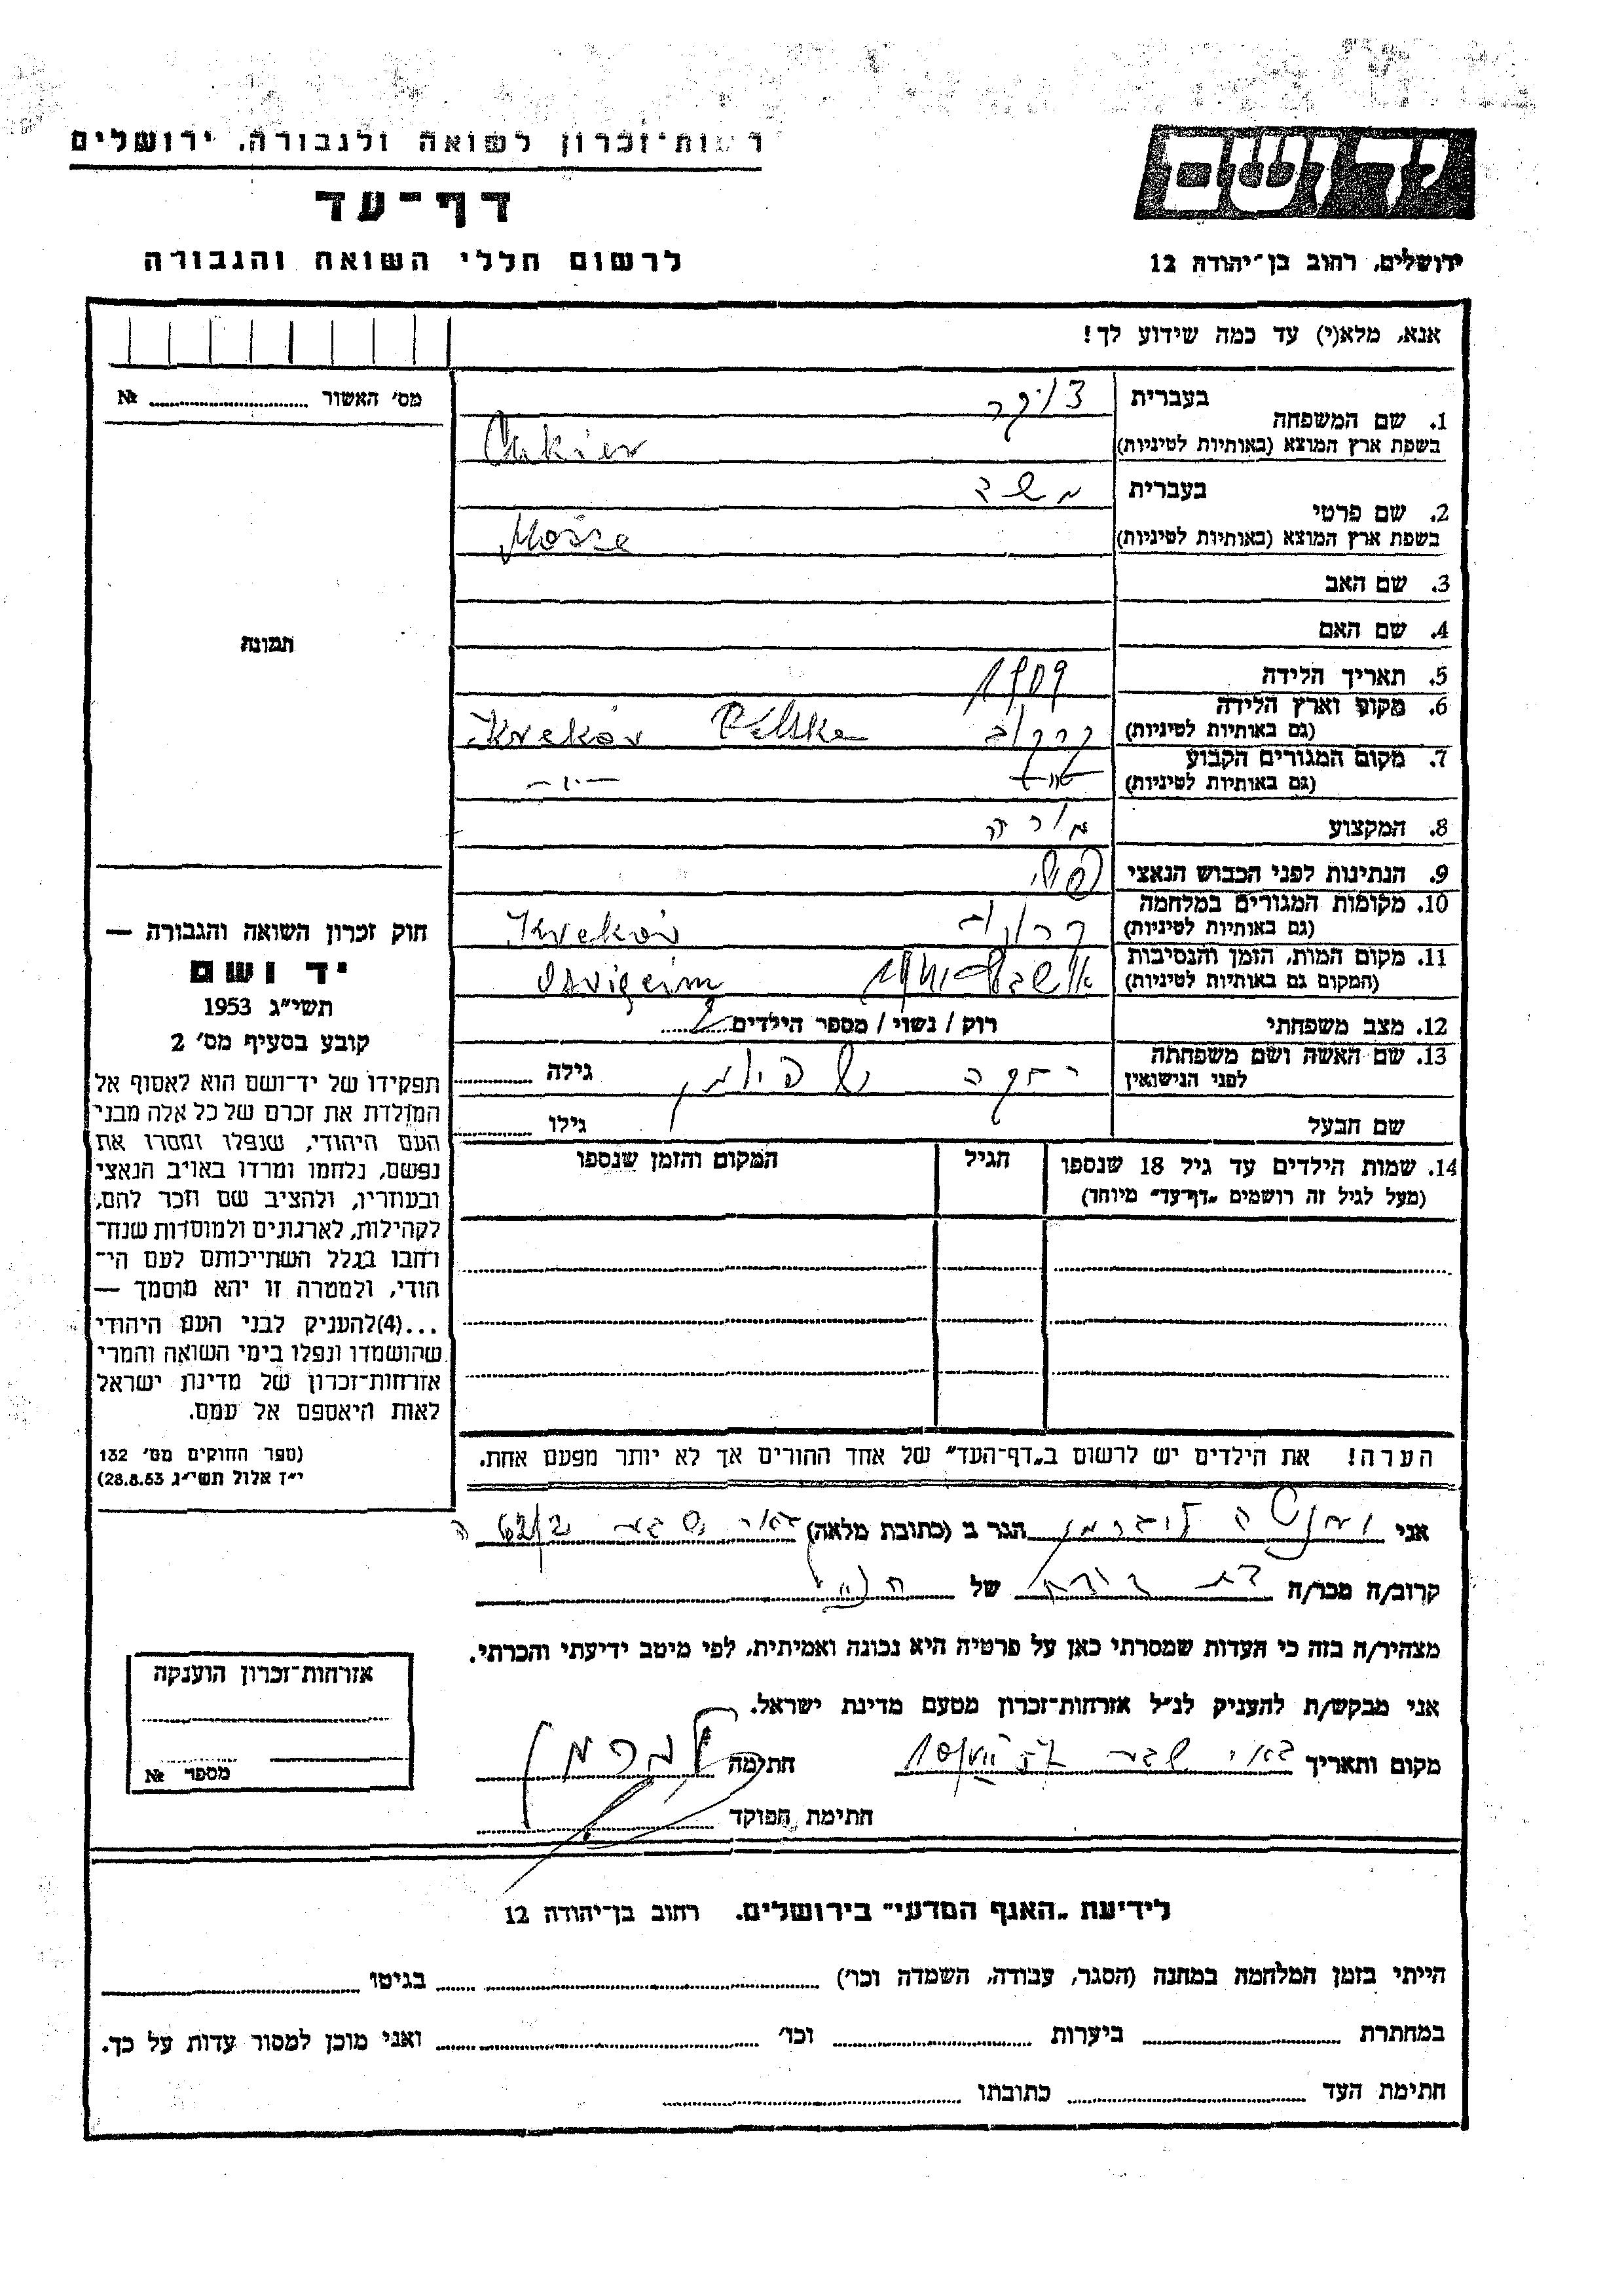 רשות-זכרון לשואה ולגבורה, ירושלים
דף-עד
לרשום חללי השואה והגבורה
יד ושם
ירושלים, רחוב בן-יהודה 12
אנא, מלא(י) עד כמה שידוע לך!
מס' האשור № 
תמונה
חוק זכרון השואה והגבורה —
יד ושם
תשי"ג 1953
קובע בסעיף מס' 2
תפקידו של יד-ושם הוא לאסוף אל
המולדת את זכרם של כל אלה מבני
העם היהודי, שנפלו ומסרו את
נפשם, נלחמו ומרדו באויב הנאצי
ובעוזריו, ולהציב שם וזכר להם,
לקהילות, לארגונים ולמוסדות שנח־
רחבו בגלל השתייכותם לעם הי־
הודי, ולמטרה זו יהא מוסמך —
...(4) להעניק לבני העם היהודי
שהושמדו ונפלו בימי השואה והמרי
אזרחות-זכרון של מדינת ישראל
לאות היאספם אל עמם.
(ספר החוקים מס' 132
י"ז אלול תשי"ג 28.8.53)
1. שם המשפחה
בעברית צוקר
בשפת ארץ המוצא (באותיות לטיניות) Cukier
2. שם פרטי
בעברית משה
בשפת ארץ המוצא (באותיות לטיניות)
3. שם האב
4. שם האם
5. תאריך הלידה 1909
6. מקום וארץ הלידה
(גם באותיות לטיניות) קרקוב Polska Krakóv
7. מקום המגורים הקבוע
(גם באותיות לטיניות) —"—
8. המקצוע מורה
9. הנתינות לפני הכבוש הנאצי
10. מקומות המגורים במלחמה
(גם באותיות לטיניות) קרקוב Krakóv
11. מקום המות, הזמן והנסיבות
(המקום גם באותיות לטיניות)
12. מצב משפחתי רוק / נשוי / מספר הילדים 2
13. שם האשה ושם משפחתה
לפני הנישואין גילה
שם הבעל גילו
14. שמות הילדים עד גיל 18 שנספו
(מעל לגיל זה רושמים "דף-עד" מיוחד)
הגיל
המקום והזמן שנספו
הערה! את הילדים יש לרשום ב"דף-העד" של אחד ההורים אך לא יותר מפעם אחת.
אני הגר ב (כתובת מלאה) באר שבע
קרוב/ה מכר/ה של
מצהיר/ה בזה כי העדות שמסרתי כאן על פרטיה היא נכונה ואמיתית, לפי מיטב ידיעתי והכרתי.
אני מבקש/ת להעניק לנ"ל אזרחות-זכרון מטעם מדינת ישראל.
מקום ותאריך באר שבע חתימה
חתימת הפוקד
אזרחות-זכרון הוענקה
מספר №
לידיעת "האגף המדעי" בירושלים. רחוב בן-יהודה 12
הייתי בזמן המלחמה במחנה (הסגר, עבודה, השמדה וכו') בגיטו
במחתרת ביערות וכו' ואני מוכן למסור עדות על כך.
חתימת העד כתובתו